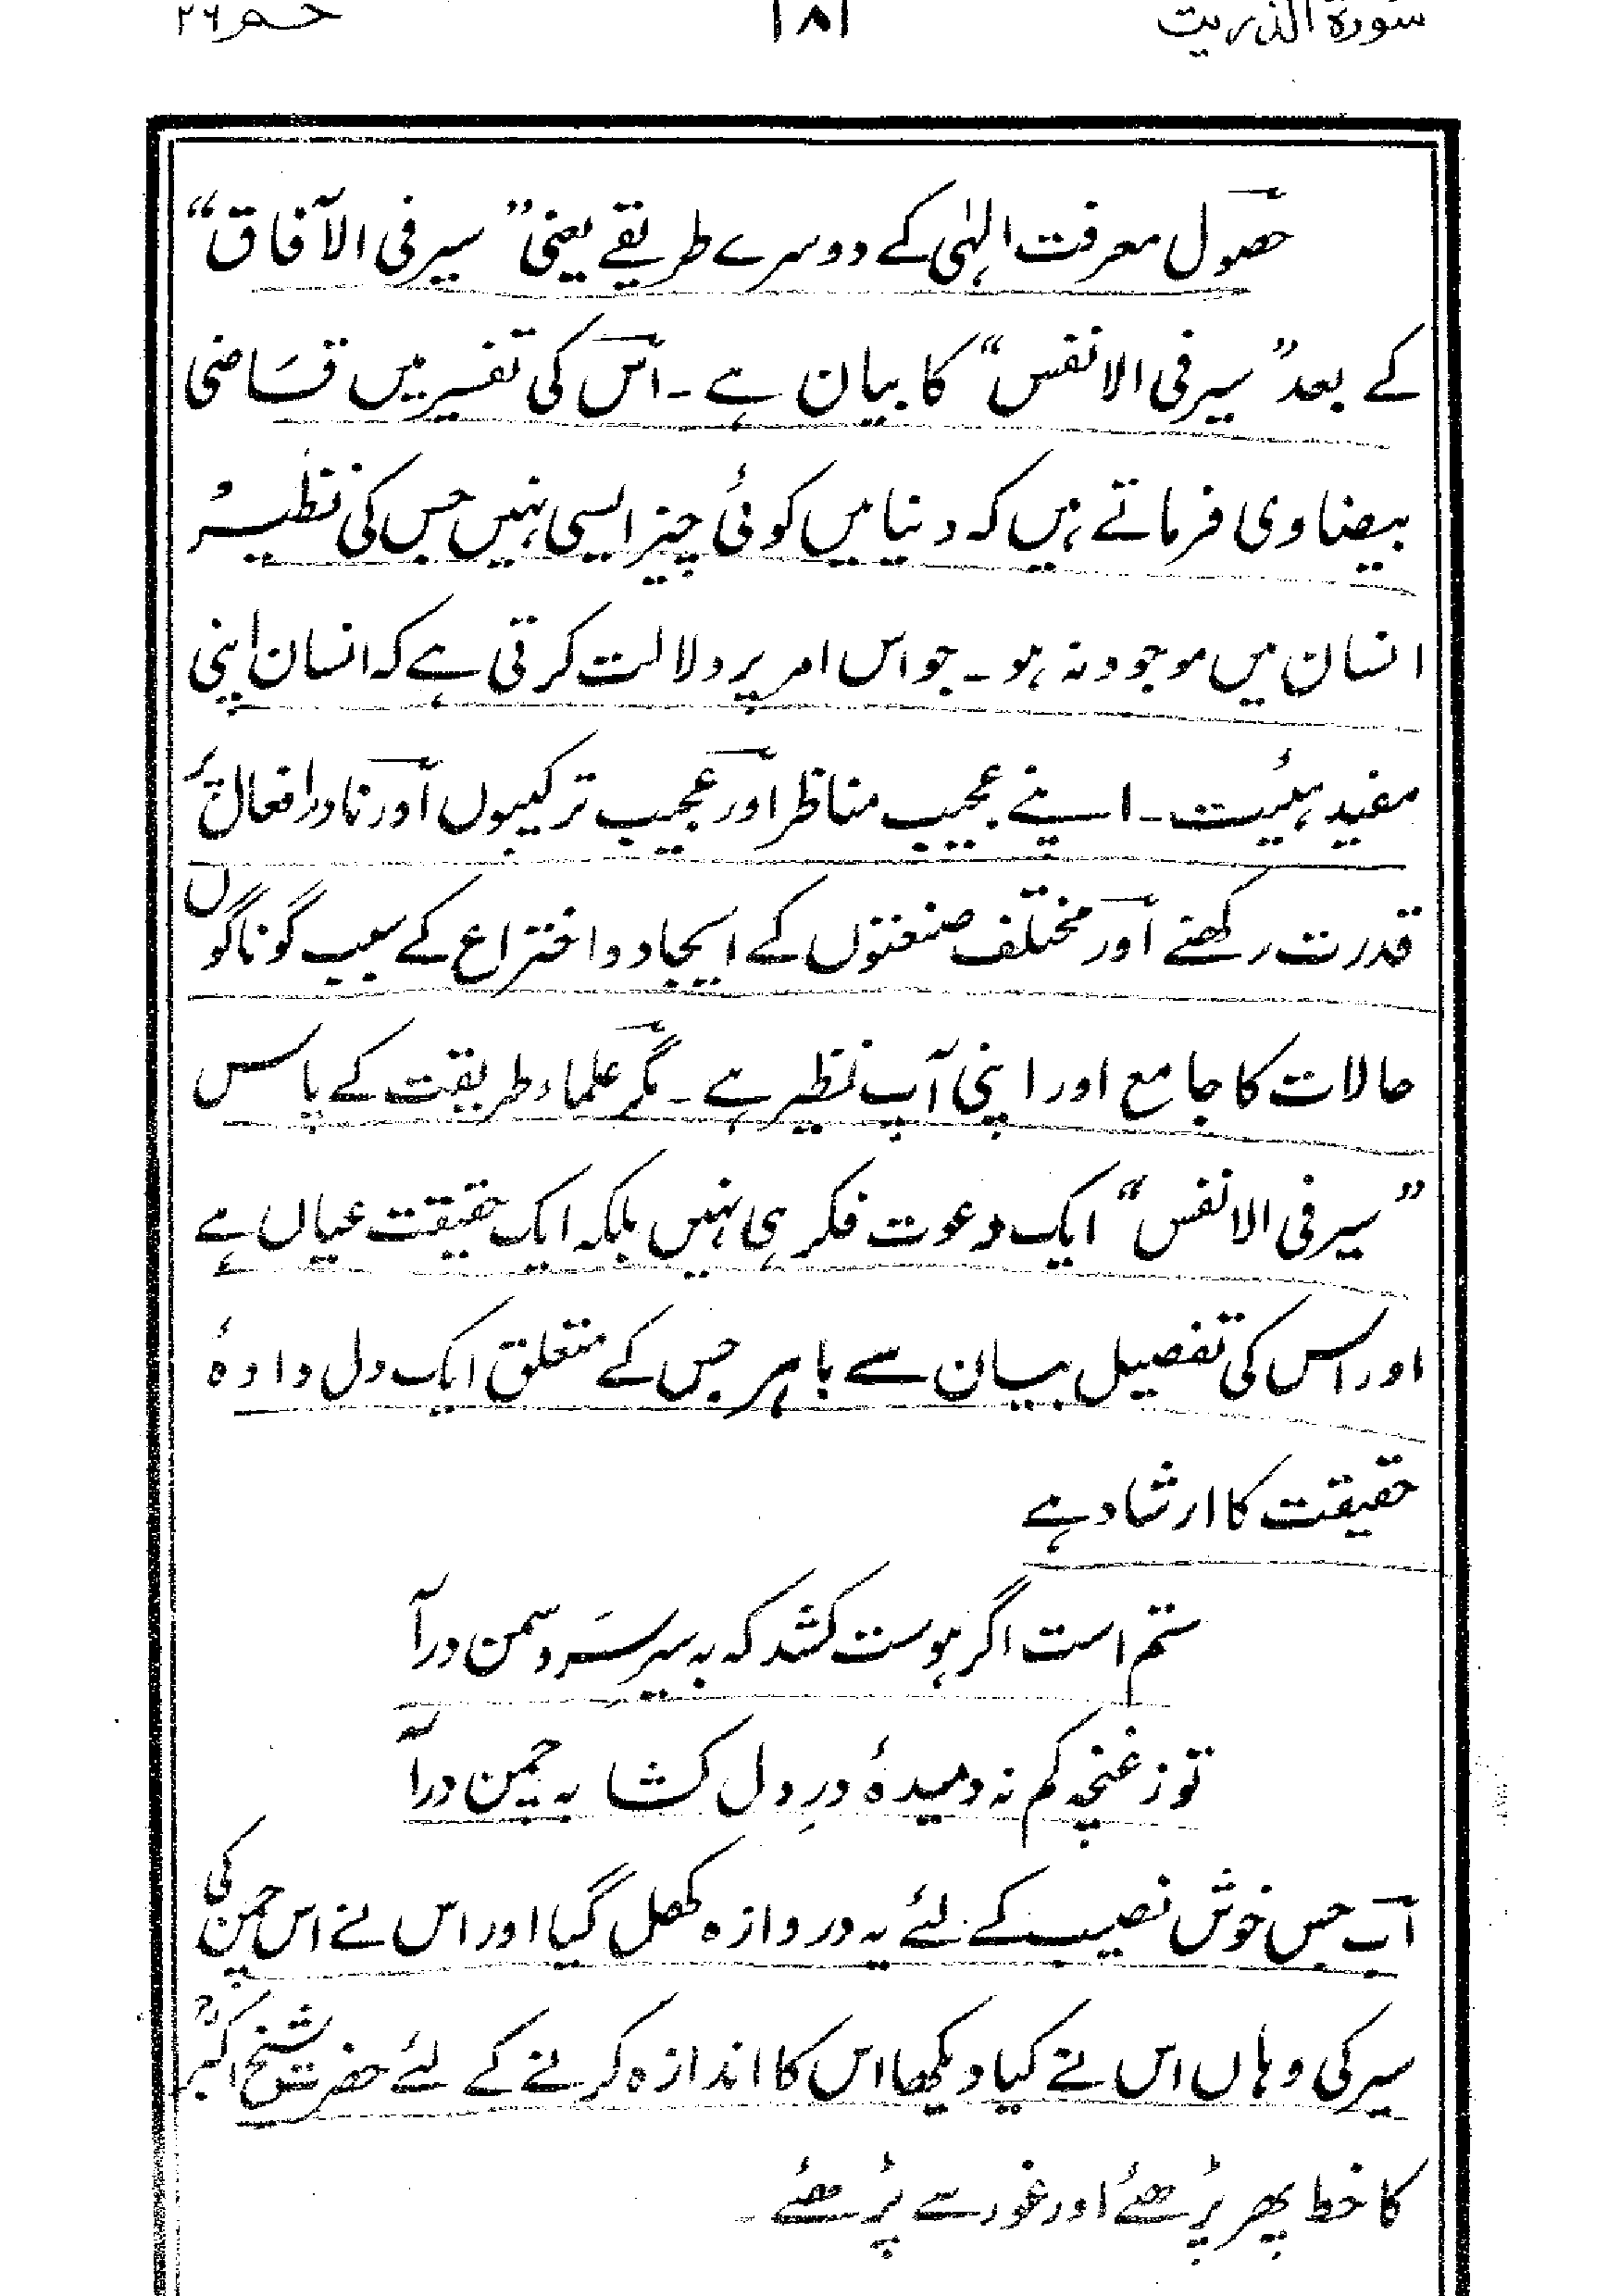 سورة الذریت ۱۸۱ حٰمٓ ۲۶
حصول معرفت الہٰی کے دوسرے طریقے یعنی ”سیر فی الآفاق“
کے بعد ”سیر فی الانفس“ کا بیان ہے۔ اس کی تفسیر میں قاضی
بیضاوی فرماتے ہیں کہ دنیا میں کوئی چیز ایسی نہیں جس کی نظیر
انسان میں موجود نہ ہو۔ جو اس امر پر دلالت کرتی ہے کہ انسان اپنی
مفید ہئیت۔ اپنے عجیب مناظر اور عجیب ترکیبوں اور نادر افعال پر
قدرت رکھنے اور مختلف صنعتوں کے ایجاد و اختراع کے سبب گوناگوں
حالات کا جامع اور اپنی آپ نظیر ہے۔ مگر علماء طریقت کے پاس
”سیر فی الانفس“ ایک دعوت فکر ہی نہیں بلکہ ایک حقیقت عیاں ہے
اور اس کی تفصیل بیان سے باہر جس کے متعلق ایک دل دادۂ
حقیقت کا ارشاد ہے
ستم است اگر ہوست کشد کہ بہ سیر سرو سمن درآ
تو ز غنچہ کم نہ دمیدۂ درِ دل کشا بہ چمن درآ
اب جس خوش نصیب کے لئے یہ دروازہ کھل گیا اور اس نے اس چمن کی
سیر کی وہاں اس نے کیا دیکھا اس کا اندازہ کرنے کے لئے حضرت شیخ اکبرؒ
کا خط پھر پڑھئے اور غور سے پڑھئے۔